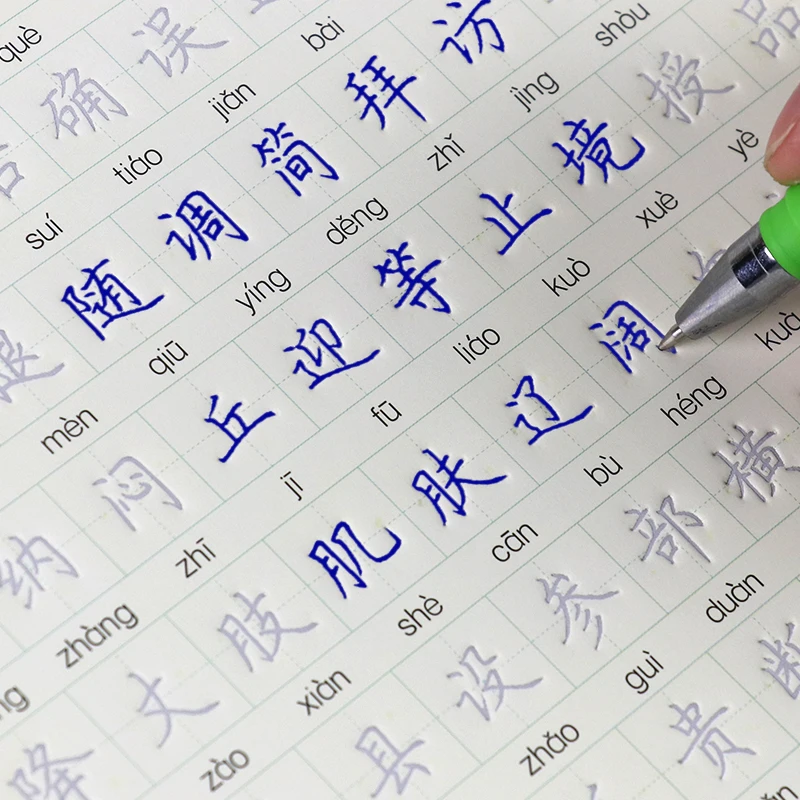 què
确 误
suí tiáo jiǎn bài
腿 随 调 简 拜 访
mèn qiū yíng děng zhǐ jìng shòu
纳 闷 丘 迎 等 止 境 授 品
zhàng zhī jī fū liáo kuò xuè yè
降 丈 肢 肌 肤 辽 阔
zào xiàn shè cān bù héng kuà
县 设 参 部 横
zhǎo guì duàn
贵 断